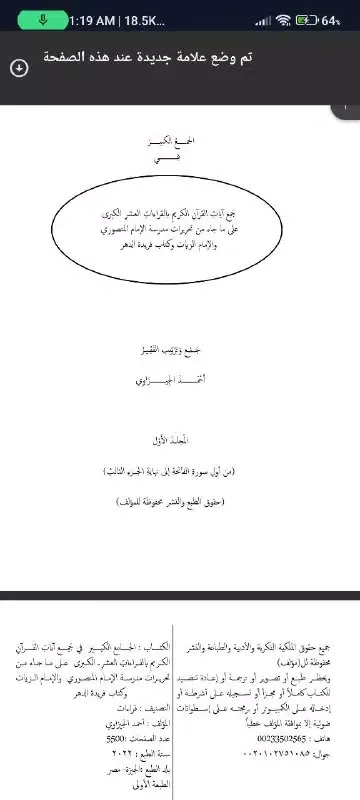 1:19 AM | 18.5K...
64%
تم وضع علامة جديدة عند هذه الصفحة
الجمع الكبير
في
جمع آيات القرآن الكريم بالقراءات العشر الكبرى
على ما جاء من تحريرات مدرسة الإمام المنصوري
والإمام الزيات وكتاب فريدة الدهر
جمع وترتيب الفقير
أحمد الجيزاوي
المجلد الأول
(من أول سورة الفاتحة إلى نهاية الجزء الثالث)
(حقوق الطبع والنشر محفوظة للمؤلف)
جميع حقوق الملكية الفكرية والأدبية والطباعة والنشر
محفوظة لل(مؤلف)
ويحظر طبع أو تصوير أو ترجمة أو إعادة تنضيد
للكتاب كاملاً أو مجزأ أو تسجيله على أشرطة أو
إدخاله على الكمبيوتر أو برمجته على إسطوانات
ضوئية إلا بموافقة المؤلف خطياً
هاتف : 00233502565
جوال: ٠٠٢٠١٠٢٧٥١٠٨٥
الكتاب : الجامع الكبير في جمع آيات القرآن
الكريم بالقراءات العشر الكبرى على ما جاء من
تحريرات مدرسة الإمام المنصوري والإمام الزيات
وكتاب فريدة الدهر
التصنيف : قراءات
المؤلف : أحمد الجيزاوي
عدد الصفحات :5500
سنة الطبع : ٢٠٢٢
بلد الطبع :الجيزة- مصر
الطبعة الأولى